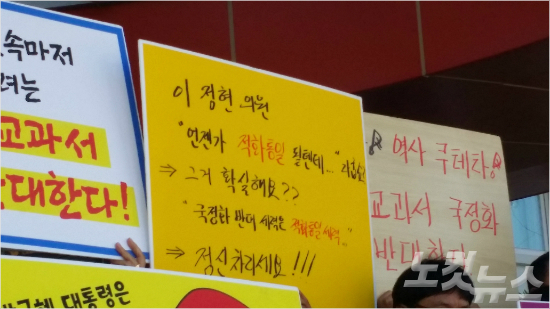 속마저
려는
교과서
반대한다!
이정현 의원
"언젠가 적화통일 될텐데..."
⇒ 그거 확실해요??
"국정화 반대 세력은 적화통일 세력.."
⇒ 정신차리세요!!!
역사 쿠데타
교과서 국정화
반대한다
대통령은
노컷뉴스